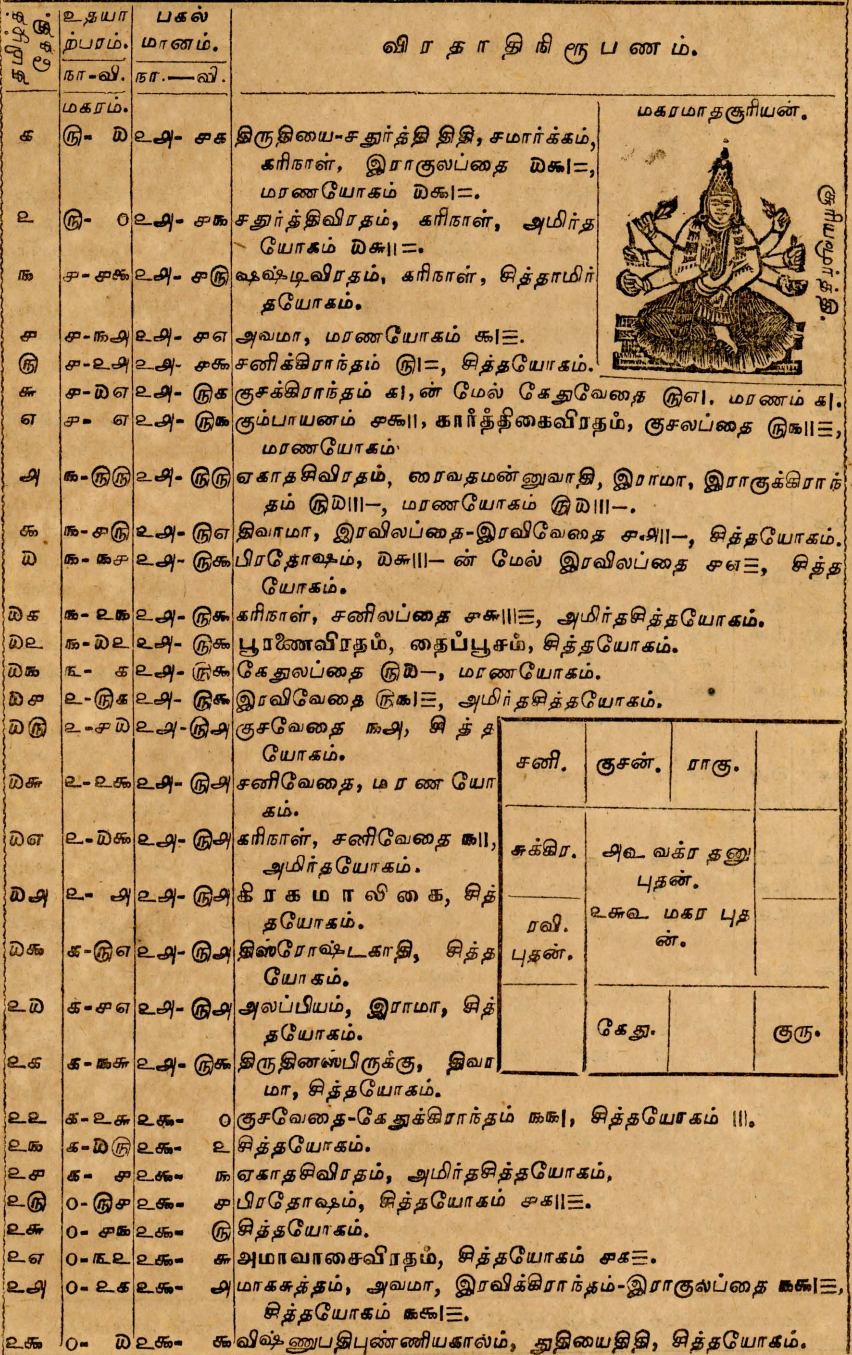 தமிழ்த் தேதி உதயா பகல்
ற்பரம். மானம். விரதாதிநிரூபணம்.
நா-வி. நா.—வி.
மகரம். மகரமாதசூரியன்.
க ௫- ௰ ௨௮- ௪க திருதியை-சதுர்த்தி திதி, சமார்க்கம்,
கரிநாள், இராகுலப்தை ௰௯|=,
மரணயோகம் ௰௯|=.
சூரியமூர்த்தி.
௨ ௫- ० ௨௮- ௪௩ சதுர்த்திவிரதம், கரிநாள், அமிர்த
யோகம் ௰௬||=.
௩ ௪-௪௯ ௨௮- ௪௫ ஷஷ்டிவிரதம், கரிநாள், சித்தாமிர்
தயோகம்.
௪ ௪-௩௮ ௨௮- ௪௭ அவமா, மரணயோகம் ௯|≡.
௫ ௪-௨௮ ௨௮- ௪௯ சனிக்கிராந்தம் ௫|=, சித்தயோகம்.
௬ ௪-௰௭ ௨௮- ௫௧ குசக்கிராந்தம் ௧|,ன் மேல் கேதுவேதை ௫௭|. மரணம் ௧|.
௭ ௪- ௭ ௨௮- ௫௩ கும்பாயனம் ௪௯||, கார்த்திகைவிரதம், குசலப்தை ௫௩||≡,
மரணயோகம்.
௮ ௩-௫௫ ௨௮- ௫௫ ஏகாதசிவிரதம், ரைவதமன்னுவாதி, இராமா, இராகுக்கிராந்
தம் ௫௰|||–, மரணயோகம் ௫௰|||–.
௯ ௩-௪௫ ௨௮- ௫௭ திவாமா, இரவிலப்தை-இரவிவேதை ௪௮||–, சித்தயோகம்.
௰ ௩-௩௪ ௨௮- ௫௯ பிரதோஷம், ௰௬|||– ன் மேல் இரவிலப்தை ௪௭≡, சித்த
யோகம்.
௰௧ ௩- ௨௩ ௨௮- ௫௯ கரிநாள், சனிலப்தை ௪௬|||≡, அமிர்தசித்தயோகம்.
௰௨ ௩-௰௨ ௨௮- ௫௯ பூரணைவிரதம், தைப்பூசம், சித்தயோகம்.
௰௩ ௩- ௧ ௨௮- ௫௯ கேதுலப்தை ௫௰–, மரணயோகம்.
௰௪ ௨-௫௧ ௨௮- ௫௯ இரவிவேதை ௫௩|≡, அமிர்தசித்தயோகம்.
௰௫ ௨-௪௰ ௨௮-௫௮ குசவேதை ௩௮, சித்த
யோகம்.
௰௬ ௨-௨௯ ௨௮-௫௮ சனிவேதை, மரணயோ
கம்.
௰௭ ௨-௰௯ ௨௮-௫௮ கரிநாள், சனிவேதை ௩||,
அமிர்தயோகம்.
௰௮ ௨- ௮ ௨௮- ௫௮ கிரகமாலிகை, சித்
தயோகம்.
௰௯ ௧-௫௭ ௨௮- ௫௮ திஸ்ரோஷ்டகாதி, சித்த
யோகம்.
௨௰ ௧-௪௭ ௨௮- ௫௮ அலப்பியம், இராமா, சித்
தயோகம்.
௨௧ ௧-௩௬ ௨௮- ௫௯ திருதினஸ்பிருக்கு, திவா
மா, சித்தயோகம்.
சனி. குசன். ராகு.
சுக்கிர. அ௳ வக்ர தனு
புதன்.
ரவி. ௨௬௳ மகர புத
புதன். ன்.
கேது. குரு.
௨௨ ௧-௨௬ ௨௯- ० குசவேதை-கேதுக்கிராந்தம் ௩௩|, சித்தயோகம் |||.
௨௩ ௧-௰௫ ௨௯- ௨ சித்தயோகம்.
௨௪ ௧- ௪ ௨௯- ௩ ஏகாதசிவிரதம், அமிர்தசித்தயோகம்,
௨௫ ०-௫௪ ௨௯- ௪ பிரதோஷம், சித்தயோகம் ௪௧||≡.
௨௬ ०- ௪௩ ௨௯- ௫ சித்தயோகம்.
௨௭ ०-௩௨ ௨௯- ௬ அமாவாசைவிரதம், சித்தயோகம் ௪௧≡.
௨௮ ०- ௨௧ ௨௯- ௮ மாகசுத்தம், அவமா, இரவிக்கிராந்தம்-இராகுலப்தை ௩௯|≡,
சித்தயோகம் ௩௯|≡.
௨௯ ०- ௰ ௨௯- ௯ விஷ்ணுபதிபுண்ணியகாலம், துதியைதிதி, சித்தயோகம்.